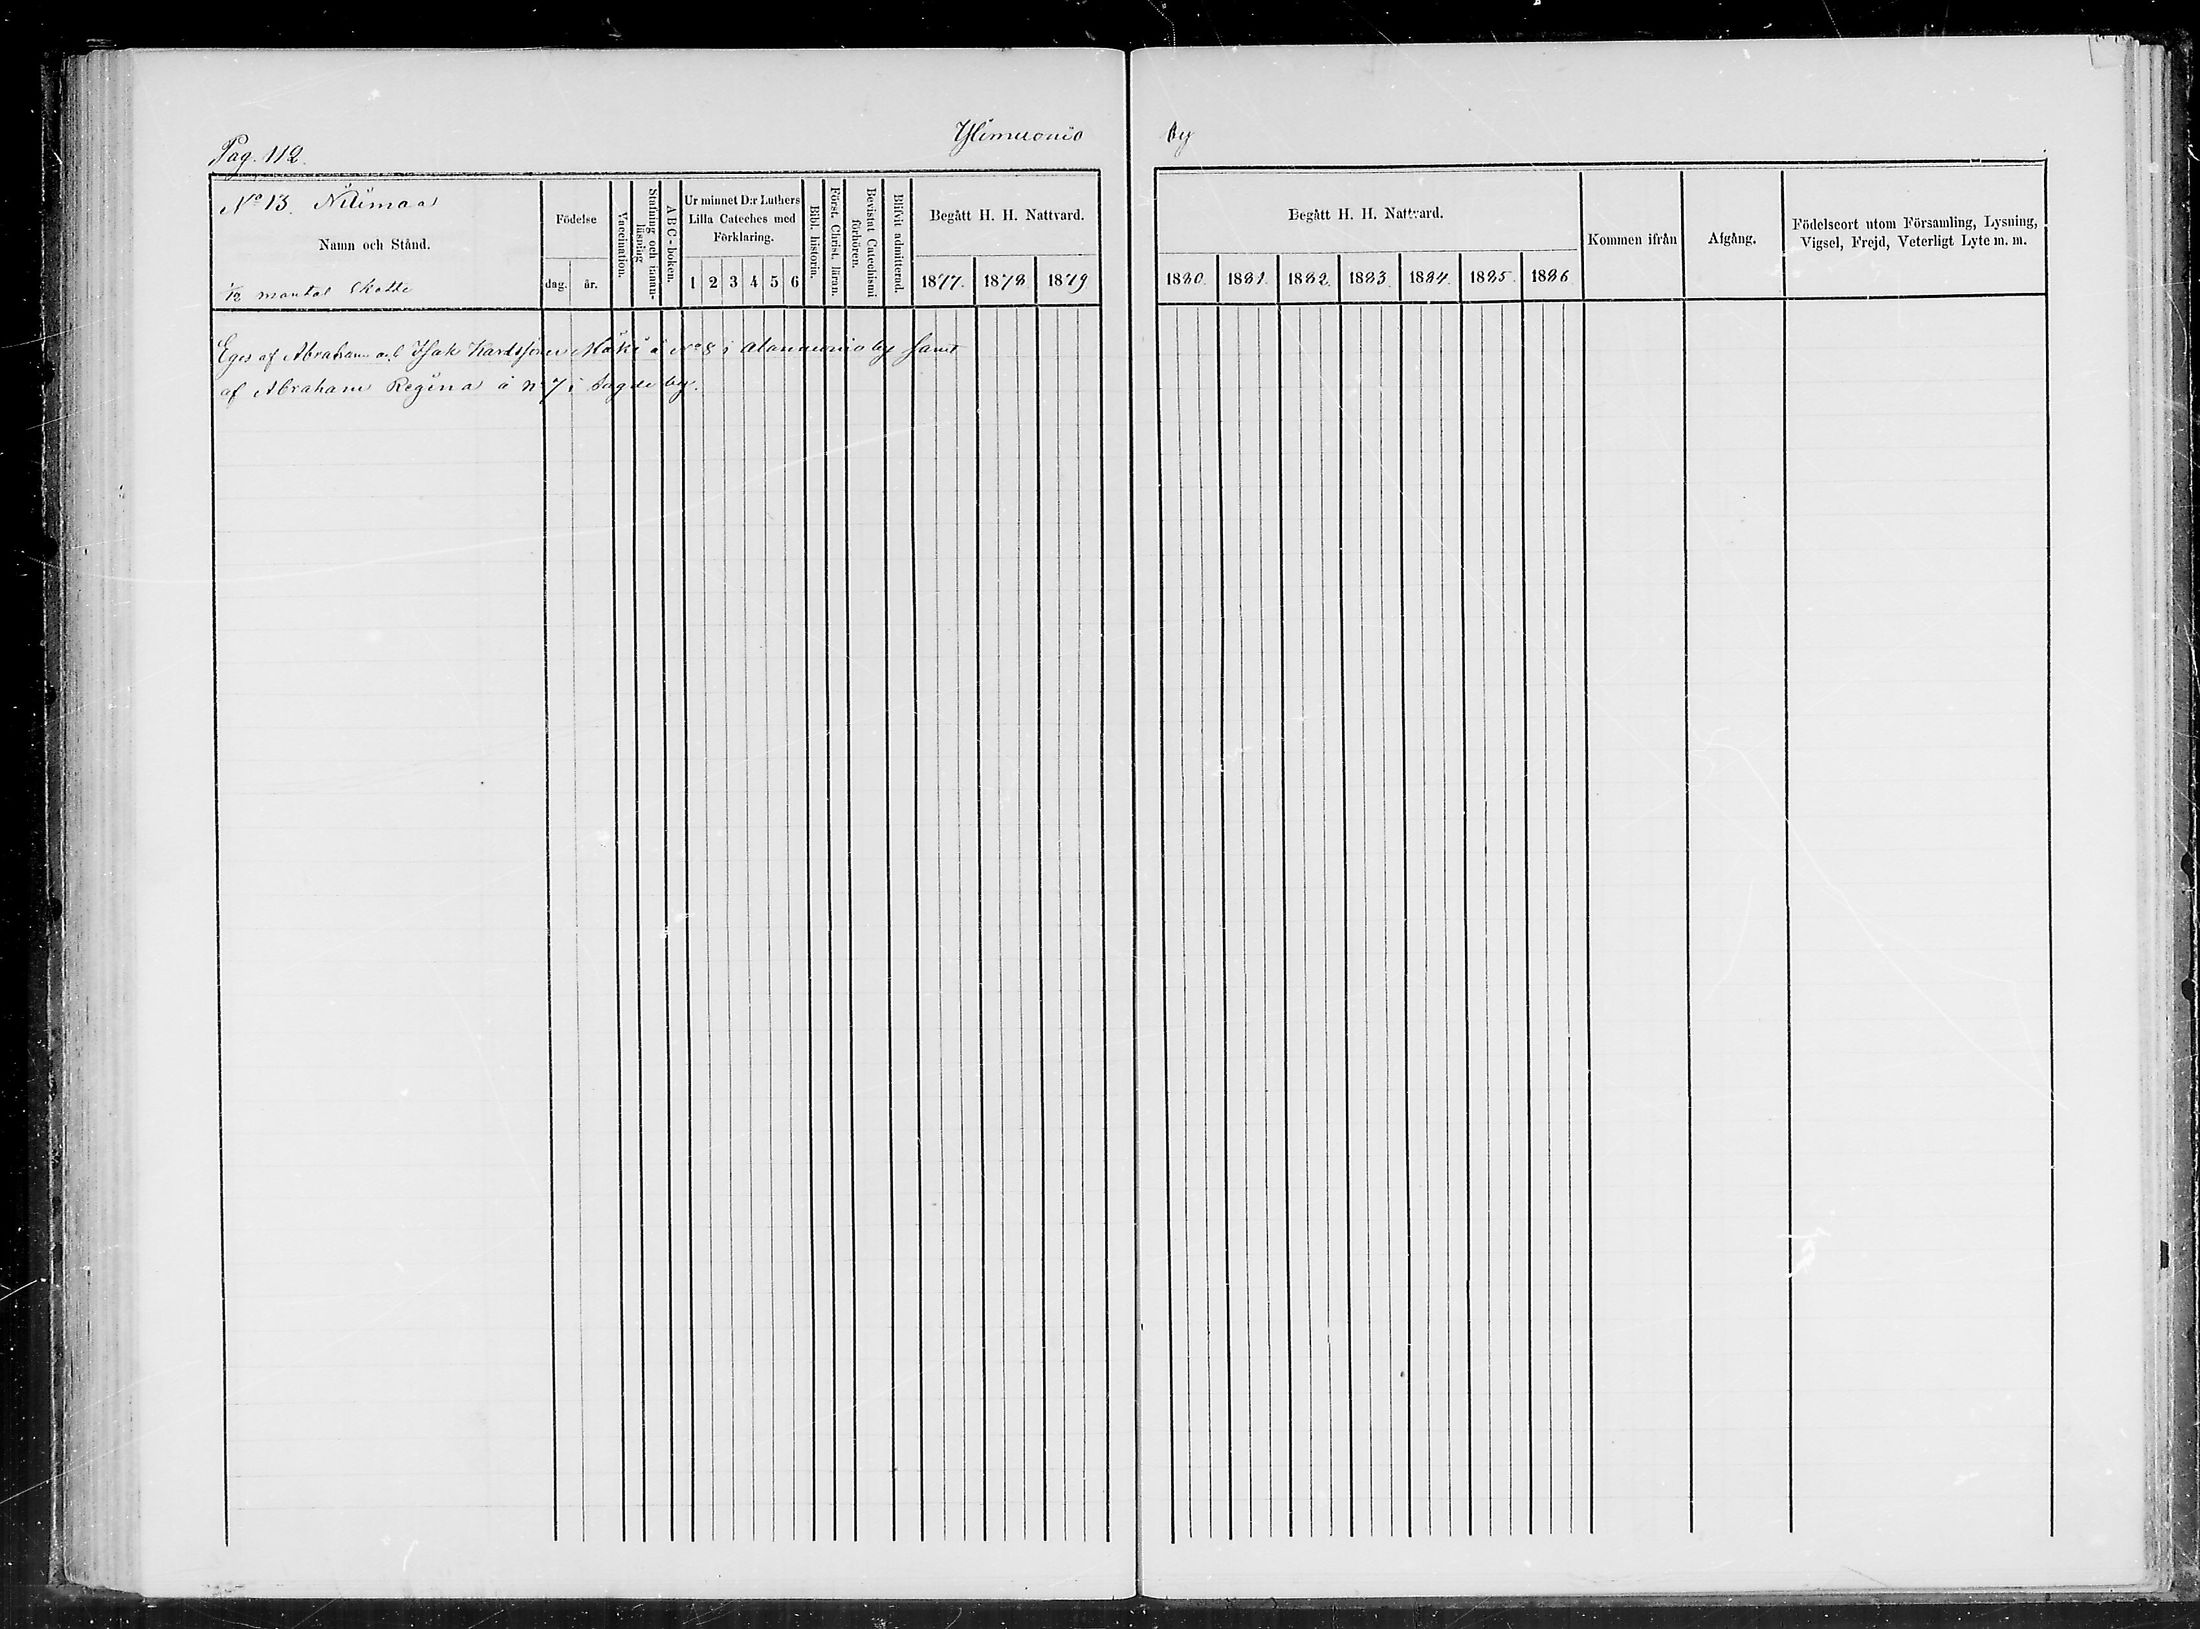 Pag. 112.
Ylimuonio
by
No 13. Niimaa
Namn och Stånd.
1/12 mantal Skatte
Födelse
dag.
år.
Vaccination.
Stafning och innan-
läsning
A B C-boken.
Ur minnet D:r Luthers
Lilla Cateches med
Förklaring.
1 2 3 4 5 6
Bibl. historia.
Först. Christ. läran.
Bevistat Catechismi
förhören.
Blifvit admitterad.
Begått H. H. Nattvard.
1877. 1878. 1879
Begått H. H. Nattvard.
1880. 1881. 1882. 1883. 1884. 1885. 1886
Kommen ifrån
Afgång.
Födelseort utom Församling, Lysning,
Vigsel, Frejd, Veterligt Lyte m. m.
Eges af Abraham och Isak Mäki å No 8 i Alamuonio by samt
af Abraham Regina å No 7 i sagde by.